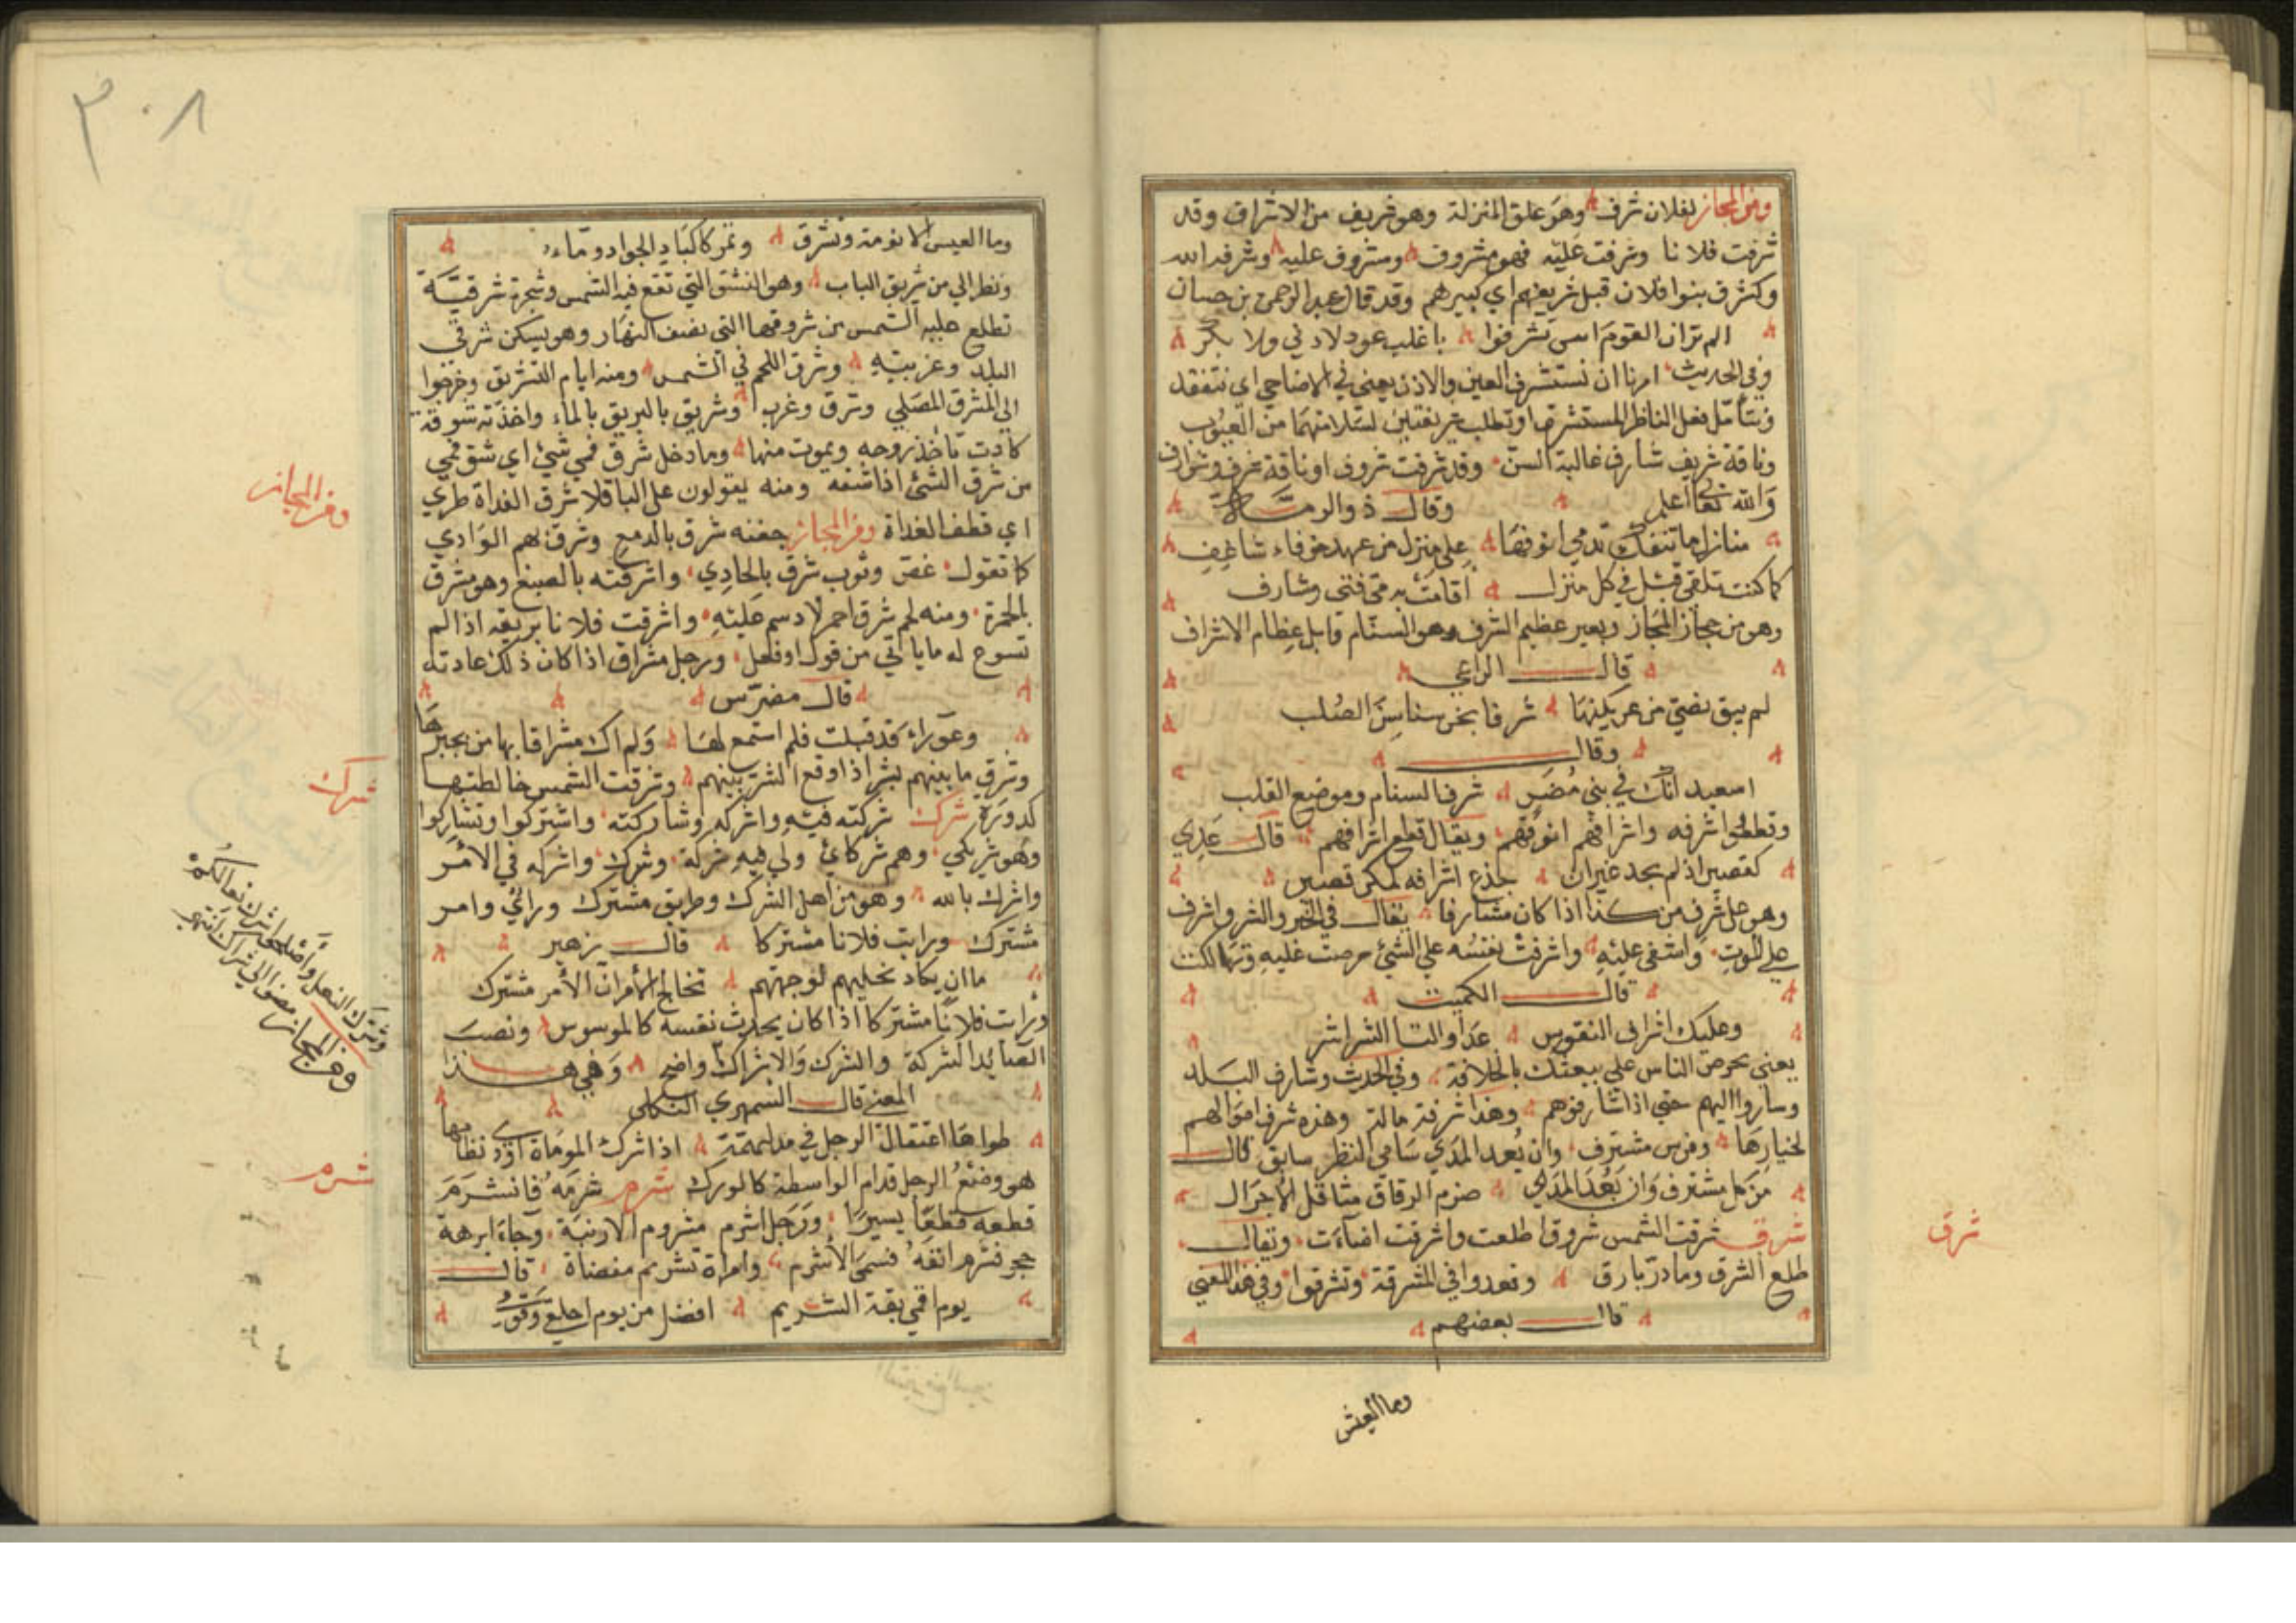 ومن المجاز لفلان شرف وهو علق المنزلة وهو شريف من الاشراف وقد
شرفت فلانا وشرفت عليه فهو مشروف ومشروف عليه وشرفه الله
وكشرف بنوا فلان قبل شريفهم اي كبيرهم وقد قال عبد الرحمن بن حسان
الم تر ان القوم امس تشرفوا باغلب عود لا دني ولا بكر
وفي الحديث امرنا ان نستشرف العين والاذن يعني في الاضاحي اي نتفقد
ونتأمل فعل الناظر المستشرف او نطلب شريفتين لسلامتهما من العيوب
وناقة شريف شارف غالبة السن وقد شرفت شروف او ناقة شرف وشوارف
والله تعالى اعلم وقال ذو الرمة
منازل ما تنفك تدمي انوفها علي منزل من عهد خرقاء شاغف
كما كنت تلقى قبل في كل منزل اقامت به مي فتى وشارف
وهو من مجاز المجاز وبعير عظيم الشرف وهو السنام وابل عظام الاشراف
قال الراعي
لم يبق نضي من عريكتها شرفا يجن سناسن الصلب
وقال
اسعيد انك في بني مضر شرف السنام وموضع القلب
وقطعوا شرفه واشرافهم انوفهم ويقال قطع اشرافهم قال عدي
كقصير اذ لم يجد غير ان جدع اشرافه لمكر قصير
وهو على شرف من كذا اذا كان مشارفا يقال في الخير والشر واشرف
على الموت واشفى عليه واشرفت نفسه على الشئ حرصت عليه وتهالكت
قال الكميت
وعليك اشراف النفوس غدا والقا الشراشر
يعني يحرص الناس علي بيعتك بالخلافة وفي الحديث وشارف البلد
وساروا اليهم حتى اذا شارفوهم وهذا شرفة ماله وهذه شرف اموالهم
لخيارها وفرس مشترف وان بُعد المدي سامي النظر سابق قال
من كل مشترف وان بعد المدى ضرم الرقاق مناقل الاجرال
شرق شرقت الشمس شروقا طلعت واشرقت اضاءت ويقال
طلع الشرق وما در بارق وتعدوا في المشرقة وتشرقوا وفي هذا المعنى
قال بعضهم
وما العيش
شرق
٣٠٨
وما العيس الا نومة وتشرق وتمر كاكباد الجواد وماء
ونظر الي من شريق الباب وهو الشق التي تقع فيه الشمس وشجرة شرقية
تطلع عليه الشمس من شروقها الى نصف النهار وهو يسكن شرقي
البلد وغربيه وشرق اللحم في الشمس ومنه ايام التشريق وخرجوا
الي المشرق المصلي وشرق وغرب وشريق بالبريق بالماء واخذته شرقة
كادت تاخذ روحه ويموت منها وما دخل شرق فمي شئ اي شق فمي
من شرق الشئ اذا شقه ومنه يقولون على الباقلا شرق الغداة طري
اي قطف الغداة ومن المجاز جفنه شرق بالدمع وشرق بهم الوادي
كما تقول غص وثوب شرق بالجادي واشرقته بالصبغ وهو مشرق
بالحمرة ومنه لحم شرق احمر لا دسم عليه واشرقت فلانا بريقه اذا لم
تسوع له ما ياتي من قول او فعل ورجل مشراق اذا كان ذلك عادته
قال مضرس
وعوراء قد قيلت فلم استمع لها ولم اك مشراقا بها من يجيرها
وشرق ما بينهم بشر اذا وقع الشر بينهم وشرقت الشمس خالطتها
كدورة شرك شركته فيه واشركه وشاركته واشتركوا وتشاركوا
وهو شريكي وهم شركائي ولي فيه شركة وشرك واشركه في الامر
واشرك بالله وهو من اهل الشرك وطريق مشترك وراي وامر
مشترك ورايت فلانا مشتركا قال زهير
ما ان يكاد يخليهم لوجهتهم تخالج الامر ان الامر مشترك
ورايت فلانا مشتركا اذا كان يحدث نفسه كالموسوس ونصب
الصايد الشركة والشرك والاشراك واضح وفي هذا
المعنى قال السمهري العكلي
طواها اعتقال الرحل في مدلهمة اذا شرك الموماة اودى نظامها
هو وضع الرجل قدام الواسطة كالورك شرم شرمه فانشرم
قطعه قطعا يسيرا ورجل اشرم مشروم الارنبة وجاء ابرهة
حجر فشرم انفه فسمى الاشرم وامراة شريم مفضاة قال
يوم اديم بقة الشريم افضل من يوم احلقي وقومي
ومن المجاز
شرك
وشرك النعل واصلحوا شرك نعالكم
ومن المجاز مضوا الى شراك انتهى
شرم